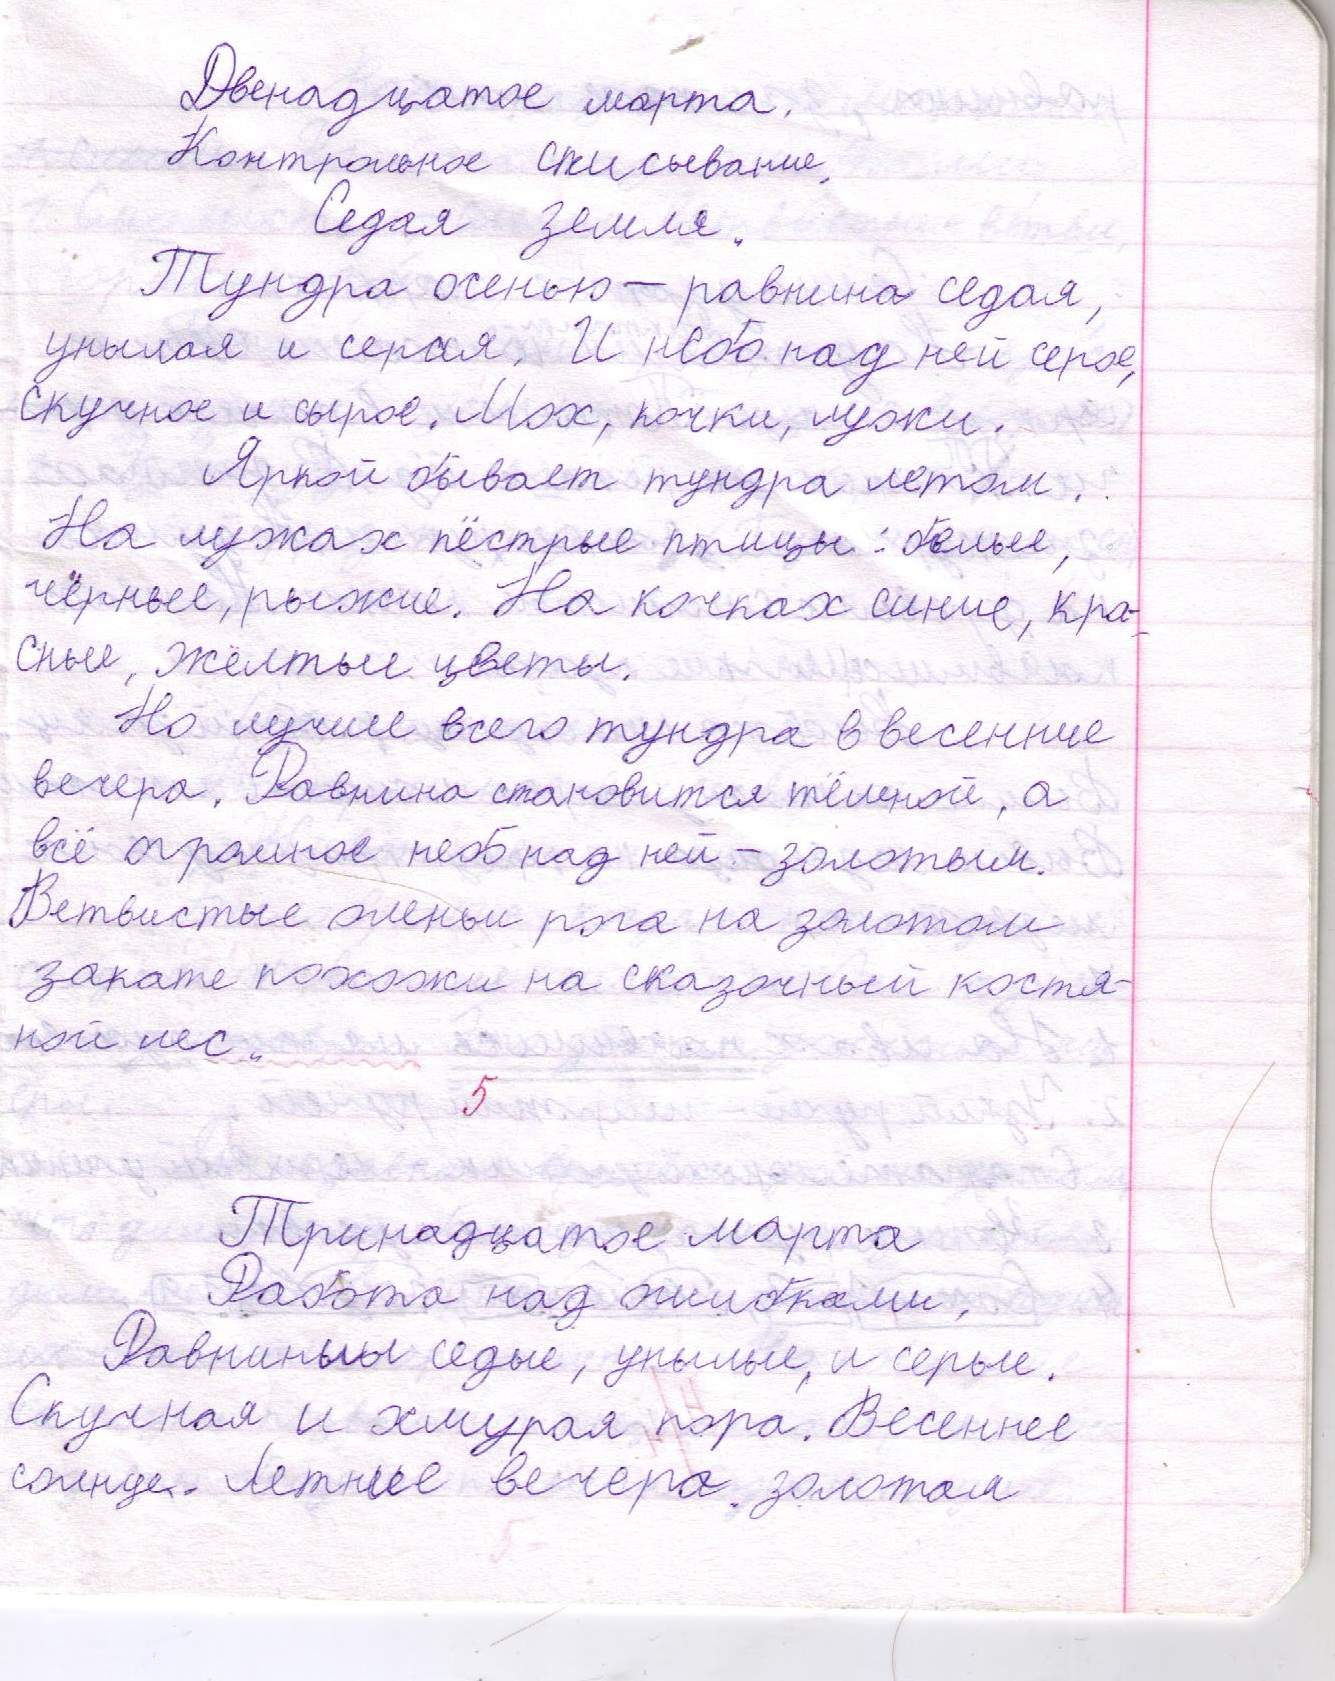 Двенадцатое марта.
Контрольное списывание.
Седая земля.
Тундра осенью – равнина седая,
унылая и серая. И небо над ней серое,
скучное и сырое. Мох, кочки, лужи.
Яркой бывает тундра летом.
На лужах пёстрые птицы: белые,
чёрные, рыжие. На кочках синие, кра-
сные, жёлтые цветы.
Но лучше всего тундра в весенние
вечера. Равнина становится тёмной, а
всё огромное небо над ней – золотым.
Ветвистые оленьи рога на золотом
закате похожи на сказочный костя-
ной лес.
5
Тринадцатое марта
Работа над ошибками.
Равнины седые, унылые, и серые.
Скучная и хмурая пора. Весеннее
солнце. Летние вечера. золотая